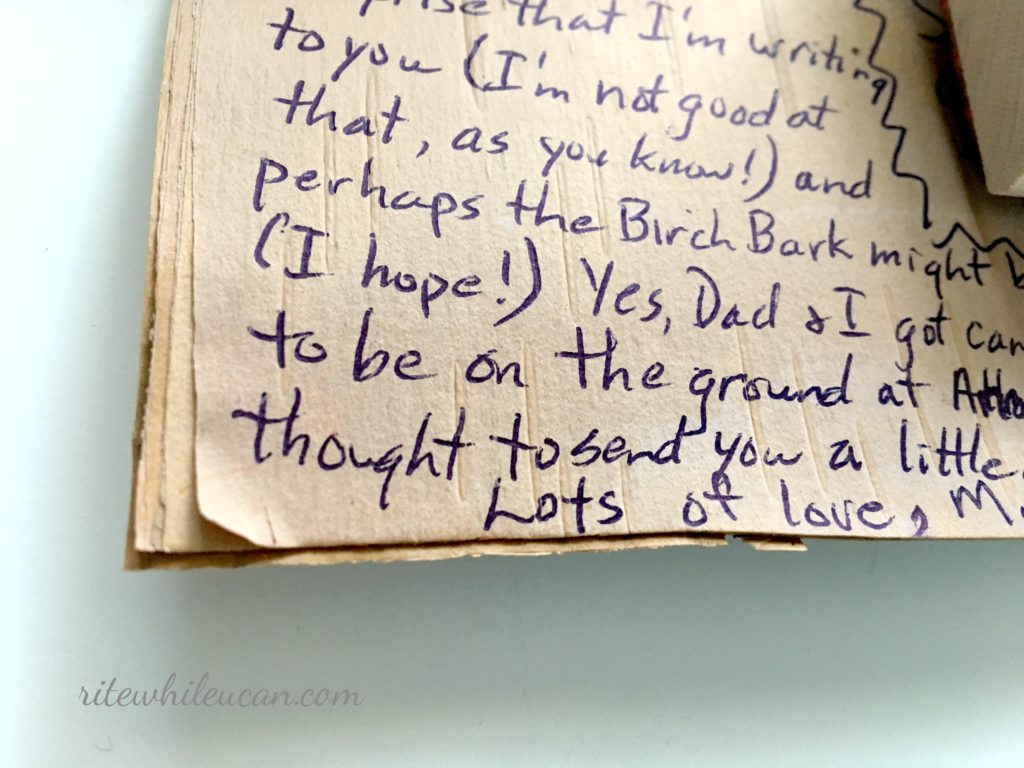 that I'm writing
to you (I'm not good at
that, as you know!) and
perhaps the Birch Bark might
(I hope!) Yes, Dad & I got
to be on the ground at
thought to send you a little
Lots of love, M.
ritewhileucan.com